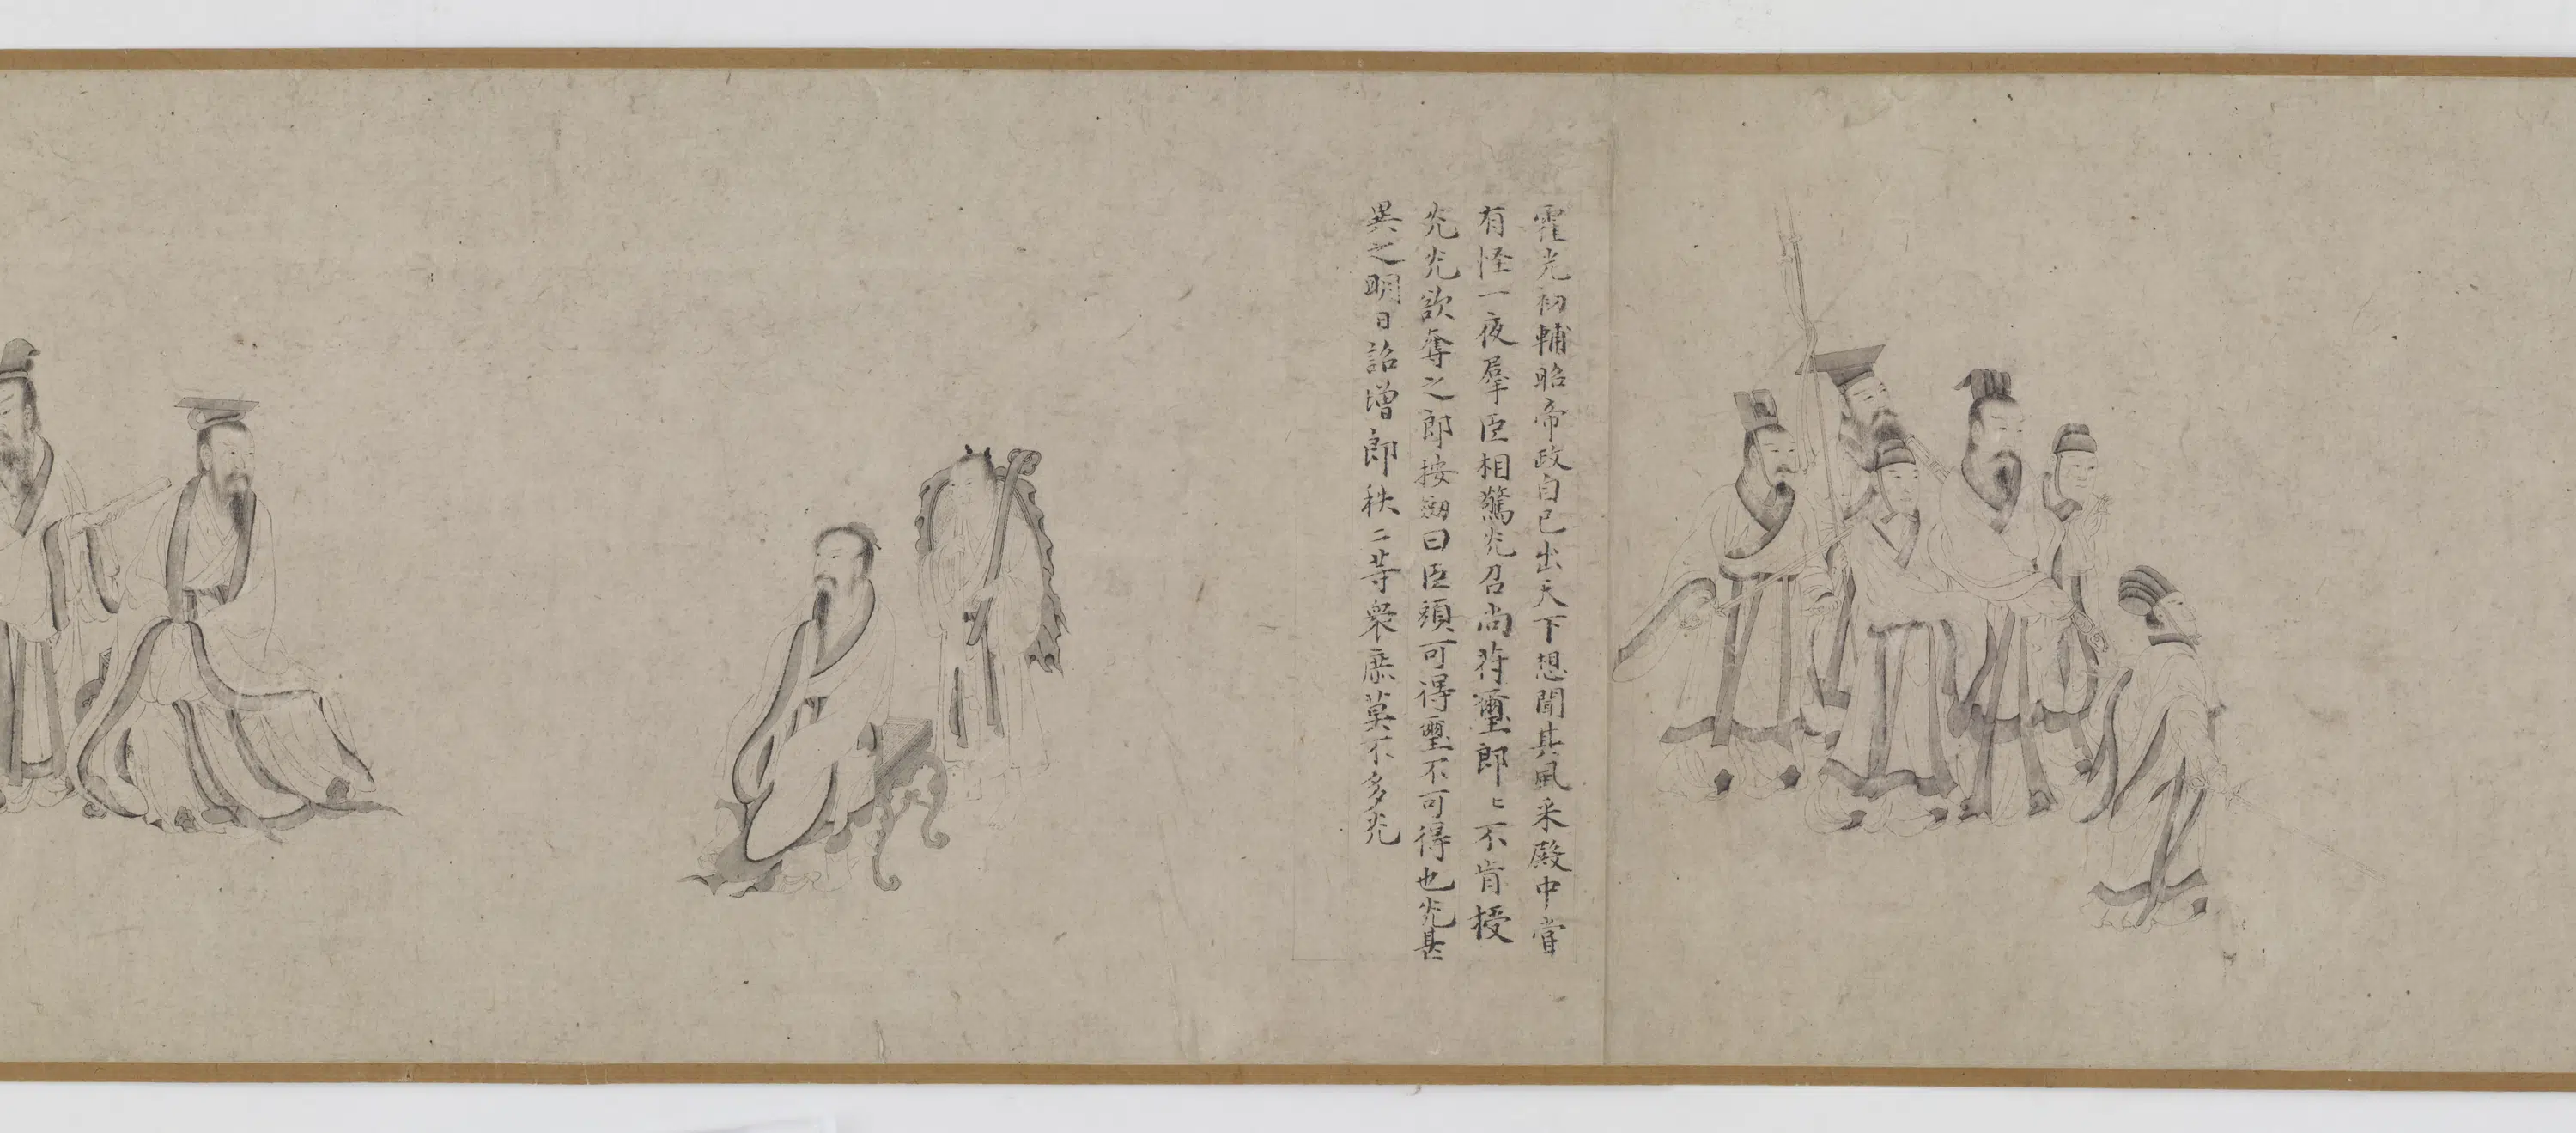 霍光初輔昭帝政自已出天下想聞其風采殿中嘗
有怪一夜羣臣相驚光召尚符璽郎〻不肯授
光光欲奪之郎按劔曰臣頭可得璽不可得也光甚
異之明日詔增郎秩二等衆庶莫不多光